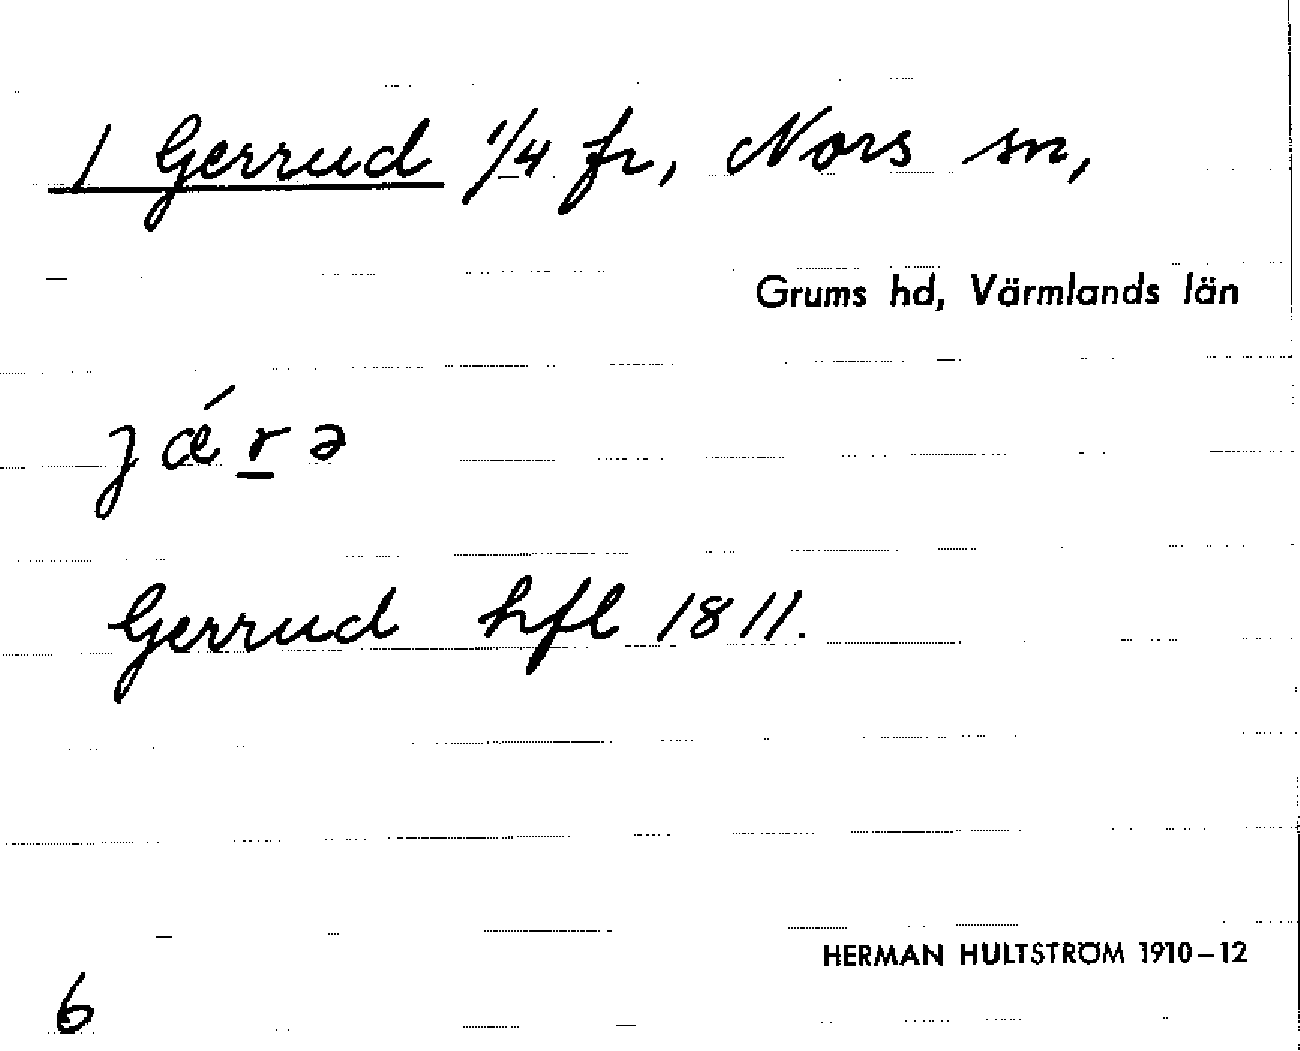 1 Gerrud 1/4 fr, Nors sn,
Grums hd, Värmlands län
jǽr̲ə
Gerrud hfl 1811.
HERMAN HULTSTRÖM 1910–12
6